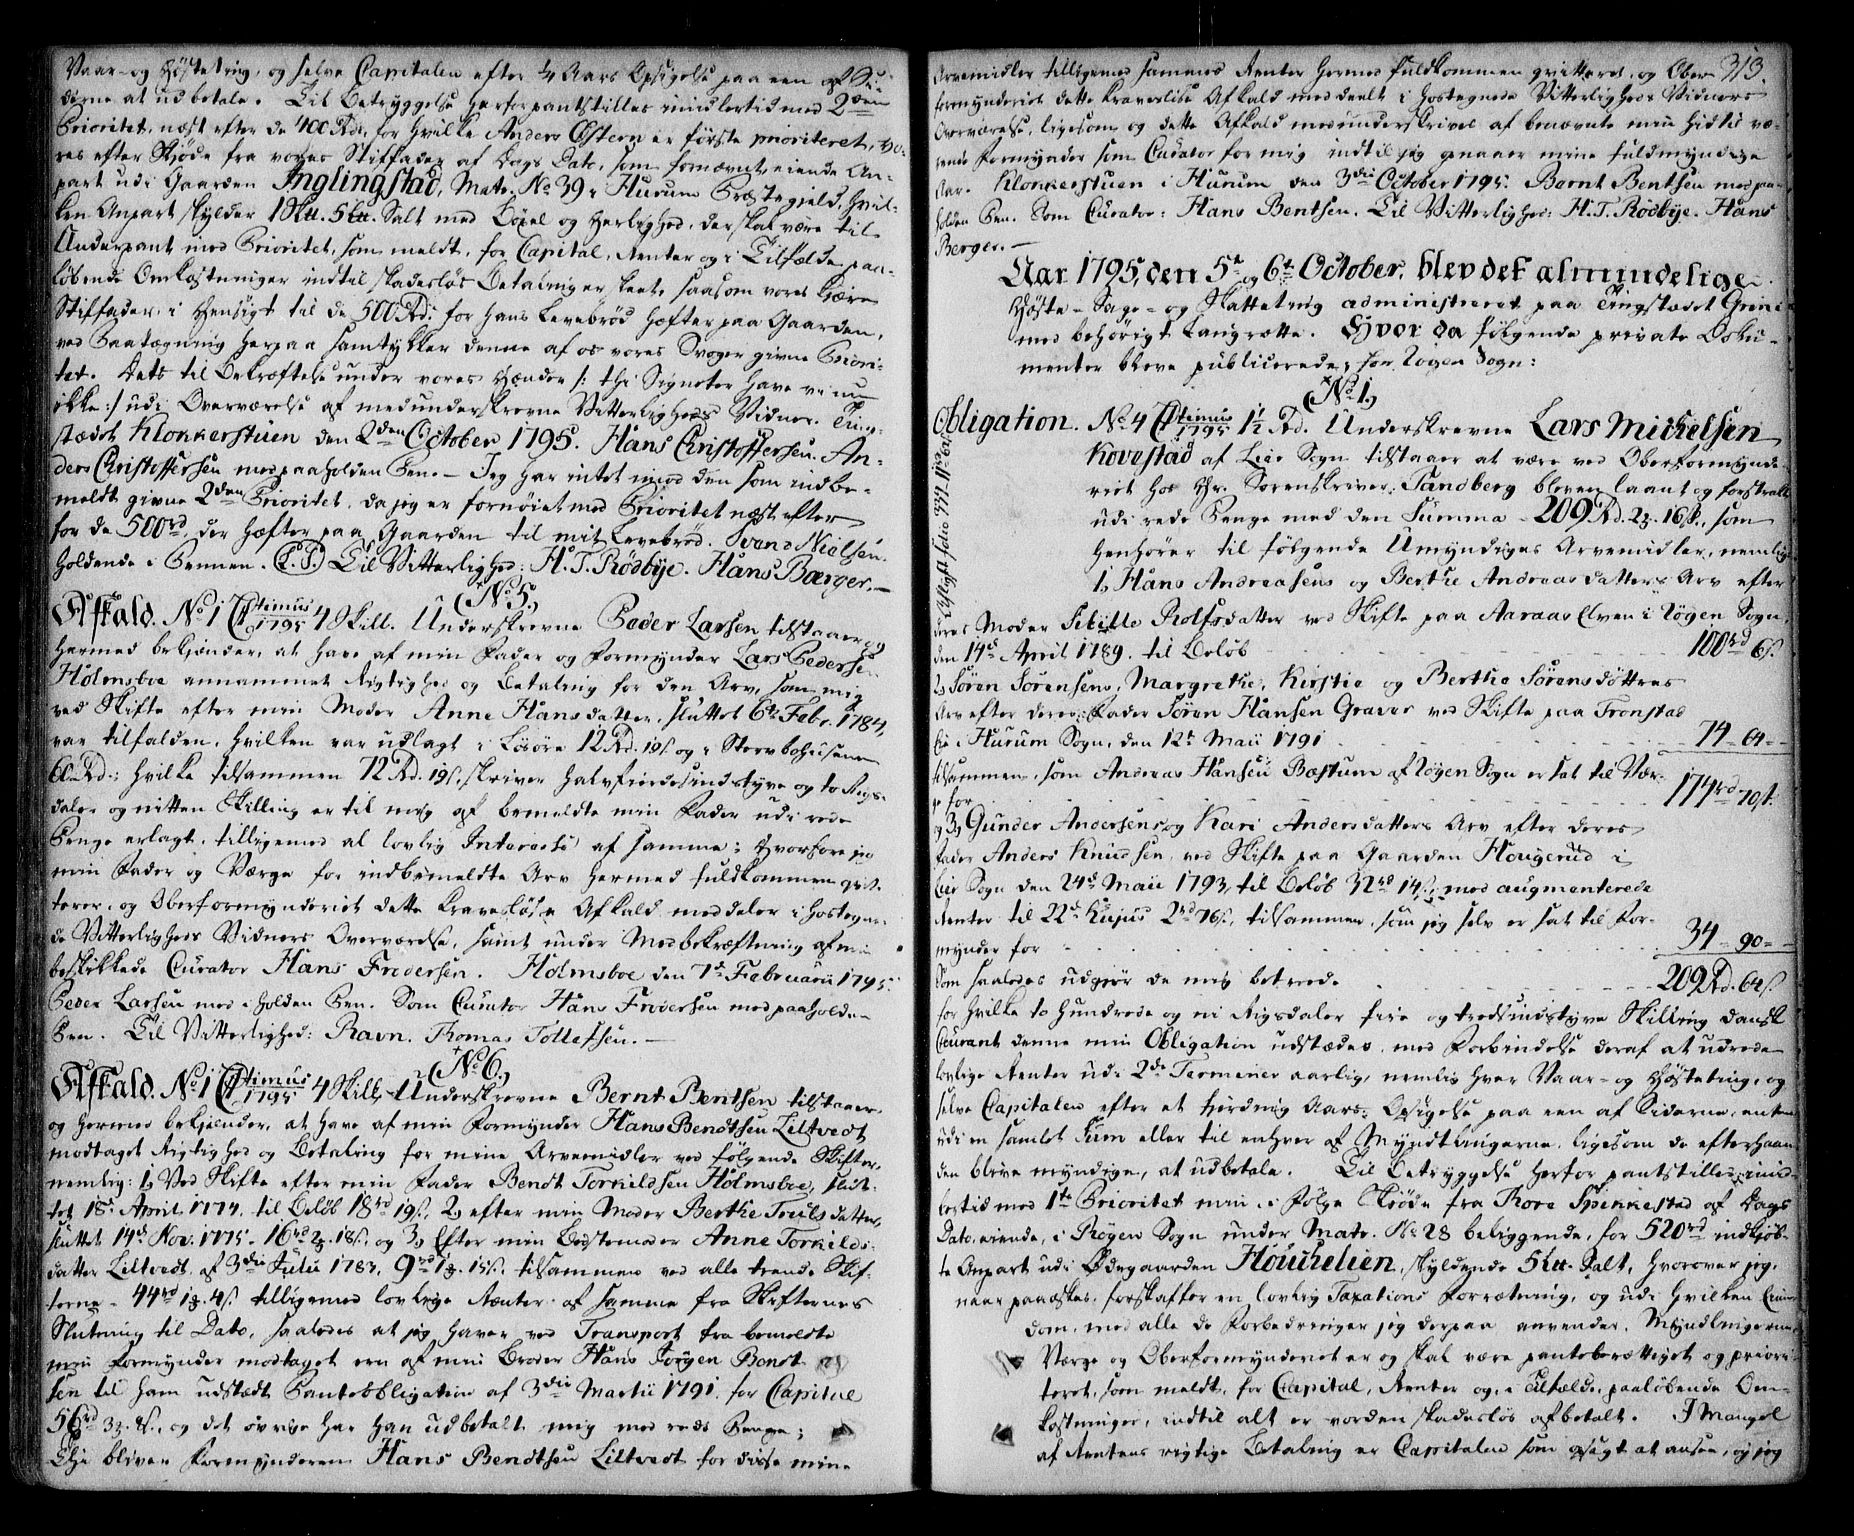 Vaar- og Høsteting, og selve Capitalen efter 1/4 Aars Opsigelse paa een af Si-
derne at udbetale. Til Betryggelse herfor pantstilles imidlertid med 2den
Prioritet, næst efter de 400 Rdr, for hvilke Anders Østern er første prioriteret, vo-
res efter Skjøde fra vores Stiffader af Dags Dato, som fornævnt, eiende An-
part udi Gaarden Inglingstad, Matr. No 39 i Hurum Præstegield, hvil-
ken Anpart skylder 1 Skll. 5 Lll. Salt med Bøxel og Herlighed, der skal være til
Underpant med Prioritet, som meldt, for Capital, Renter og i Tilfælde paa-
løbende Omkostninger indtil skadesløs Betaling er skeet, saasom vores kjære
Stiffader, i Hensigt til de 500 Rd: for hans Levebrød hæfter paa Gaarden,
ved Paategning herpaa samtykker denne af os vores Svoger givne Priori-
tet. Dets til Bekræftelse under vores Hænder /: thi Signeter have vi nu
ikke :/ udi Overværelse af medunderskrevne Vitterligheds Vidner. Ting-
stædet Klokkerstuen den 2den October 1795. Hans Christoffersen. An-
ders Christoffersen med paaholden Pen. — Jeg har intet imod den som indbe-
meldt givne 2den Prioritet, da jeg er fornøiet med Prioritet næst efter
for de 500rd, der hæfter paa Gaarden til mit Levebrød. Svend Nielsen
holdende i Pennen. (L.S.) Til Vitterlighed: H. T. Rödbye. Hans Bærger. —
(No 5.)
Afkald. No 1 Ctimus 1795 4 Skill. Underskrevne Peder Larsen tilstaaer og
hermed bekjender, at have af min Fader og Formynder Lars Pedersen
Holmsboe annammet Rigtighed og Betaling for den Arv, som mig
ved Skifte efter min Moder Anne Hansdatter, sluttet 6te Febr. 1784,
var tilfalden, hvilken var udlagt i Løsøre 12 Rd. 19 s. og i Storvbohusene
60 Rd.; hvilke tilsammen 72 Rd. 19 s. skriver halvfierdesindstyve og to Rigs-
daler og nitten Skilling er til mig af bemeldte min Fader udi rede
Penge erlagt, tilligemed al lovlig Interesse af samme; hvorfore jeg
min Fader og Værge for indbemeldte Arv hermed fuldkommen qvit-
terer, og Oberformynderiet dette kravesløse Afkald meddeler i hostegne-
de Vitterligheds Vidners Overværelse, samt under Medbekræftning af min
beskikkede Curator Hans Fridersen. Holmsboe den 7de Februarii 1795.
Peder Larsen med i holden Pen. Som Curator Hans Fridersen med paaholden
Pen. Til Vitterlighed: Ravn. Thomas Tollefsen. —
(No 6.)
Afkald. No 1 Ctimus 1795 4 Skill. Underskrevne Bernt Bentsen tilstaaer
og hermed bekjender, at have af min Formynder Hans Bendtsen Liltvedt
modtaget Rigtighed og Betaling for mine Arvemidler ved følgende Skifter,
nemlig: 1, Ved Skifte efter min Fader Bendt Torkildsen Holmsboe, slut-
tet 18de April 1774, til Beløb 18rd 19 s, 2, efter min Moder Berthe Truls datter,
sluttet 14de Nov. 1775. 16rd 2 . 18 s, og 3, Efter min Bestemoder Anne Torkilds-
datter Liltvedt, af 3die Julii 1783, 9rd 1 . 15 s. tilsammen ved alle trende Skif-
terne - 44rd 1 . 4 s tilligemed lovlige Renter af samme fra Skifternes
Slutning til Dato, saaledes at jeg haver ved Transport fra bemeldte
min Formynder modtaget een af min Broder Hans Jørgen Bendt-
sen til ham udstædt Panteobligation af 3die Martii 1791 for Capital
56rd 3 . 8 s., og det øvrige har han udbetalt mig med rede Penge;
Thi bliver Formynderen Hans Bendtsen Liltvedt for disse mine
313.
Arvemidler tilligemed sammes Renter hermed fuldkommen qvitteret, og Ober-
formynderiet dette kravesløse Afkald meddeelt i hostegnede Vitterligheds Vidners
Overværelse, ligesom og dette Afkald medunderskrives af benævnte min hidtil væ-
rende Formynder som Curator for mig indtil jeg opnaaer mine fuldmyndige
Aar. Klokkerstuen i Hurum den 3die October 1795. Bernt Bentsen med paa-
holden Pen. Som Curator: Hans Bentsen. Til Vitterlighed: H. T. Rödbye. Hans
Berger. —
Aar 1795, den 5te og 6te October, blev det almindelige
Høste- Sage- og Skatteting administreret paa Tingstædet Grini
med behørigt Laugrette. Hvor da følgende private Docu-
menter bleve publicerede, for Røgen Sogn:
(No 1.)
Obligation. No 4 Ctimus 1795 1 1/2 Rd. Underskrevne Lars Michelsen
Kovestad af Lier Sogn tilstaaer at være ved Oberformynde-
riet hos Hr. Sorenskriver Tandberg bleven laant og forstrakt
udi rede Penge med den Summa 209 Rd. 2 . 16 s., som
henhører til følgende Umyndiges Arvemidler, nemlig
1, Hans Andreasens og Berthe Andreasdatters Arv efter
deres Moder Sibille Rolfsdatter ved Skifte paa Aaraas Elven i Røgen Sogn,
den 14de April 1789. til Beløb 100rd 6 s.
2, Søren Sørensens, Margrethe, Kirstie og Berthe Sørensdøttres
Arv efter deres Fader Søren Hansen Graver ved Skifte paa Tronstad
Eie i Hurum Sogn, den 12te Maii 1791 74 - 64 -
tilsammen, som Andreas Hansen Bæstum af Røgen Sogn er sat til Vær-
ge for 174rd 70 s.
og 3, Gunder Andersens og Kari Andersdatters Arv efter deres
Fader Anders Knudsen, ved Skifte paa Gaarden Hougerud i
Lier Sogn den 24de Maii 1793, til Beløb 32rd 14 s, med augmenterede
Renter til 22de hujus 2rd 76 s., tilsammen, som jeg selv er sat til For-
mynder for 34 - 90 -
Som saaledes udgiør de mig betroede 209 Rd. 64 s
for hvilke to Hundrede og ni Rigsdaler fire og tredsindstyve Skilling dansk
Courant denne min Obligation udstædes, med Forbindelse deraf at udrede
lovlige Renter udi 2de Terminer aarlig, nemlig hver Vaar- og Høsteting, og
selve Capitalen efter et fierding Aars Opsigelse paa een af Siderne, enten
udi en samlet Sum eller til enhver af Myndtlingerne, ligesom de efterhaan-
den blive myndige, at udbetale. Til Betryggelse herfor pantstilles imid-
lertid med 1ste Prioritet min, i Følge Skiøde fra Thore Spikkestad af Dags
Dato, eiende, i Røgen Sogn under Matr. No 28 beliggende, for 520rd indkjøb-
te Anpart udi Ødegaarden Houchelien, skyldende 5 Lll. Salt, hvorover jeg,
naar paaæskes, forskaffer en lovlig Taxations Forrætning, og udi hvilken Eien-
dom, med alle de Forbedringer jeg derpaa anvender, Myndlingernes
Værge og Oberformynderiet er og skal være panteberettiget og priori-
teret, som meldt, for Capital, Renter og, i Tilfælde, paaløbende Om-
kostninger, indtil alt er vorden skadesløs afbetalt. I Mangel
af Rentens rigtige Betaling er Capitalen som opsagt at ansee, og jeg